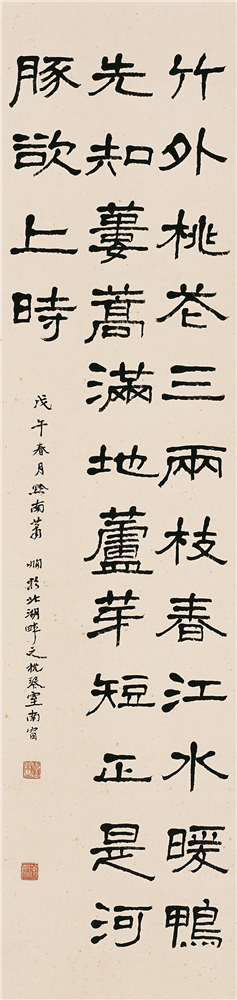 竹外桃花三兩枝春江水暖鴨
先知蔞蒿滿地蘆芽短正是河
豚欲上時
戊午春月黔南蕭嫻於北湖畔之枕琴室南窗